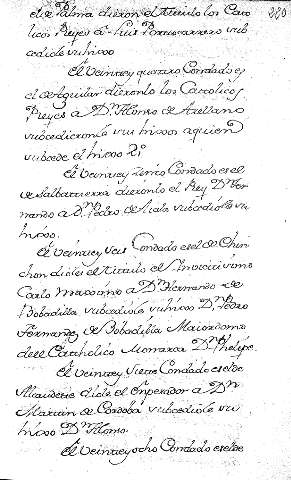 de Palma dieron el titulo los Cato
licos Reyes a Luis Portocarrero sub
cediole su hixo
280
El Veinte y quatro Condado es
el de Aguilar dieronlo los Catolicos
Reyes a Dn Alonso de Arellano
subcedieronlo sus hixos a quien
subcede el hixo 2º
El Veinte y zinco Condado es el
de Salbatierra dieronlo el Rey Dn Fer
nando a Dn Pedro de Aiala subcediole su
hixo.
El Veinte y seis Condado es el de Chin
chon diole el titulo el Invictissimo
Carlo Maximo a Dn Hernando de
Bobadilla subcediole su hixo Dn Pedro
Fernandez de Bobadilla Maiordomo
del Catholico Monarca Dn Phelipe.
El Veinte y siete Condado es el de
Alcaudete diole el Enperador a Dn
Martin de Cordoba subcediole su
hixo Dn Alonso.
El Veinte y ocho Condado es el de